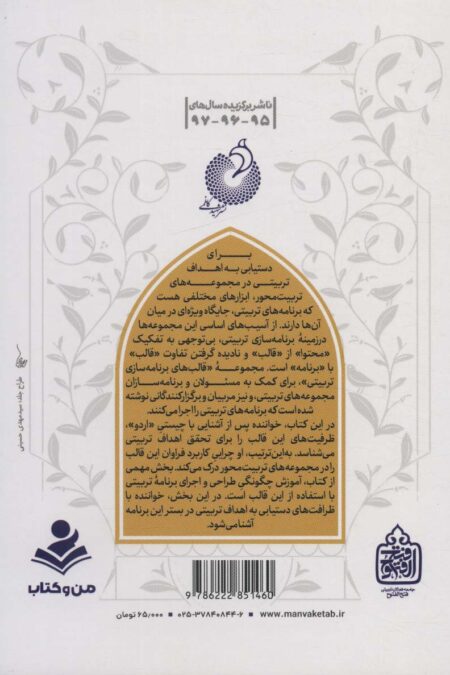 ناشر برگزیده سال‌های
۹۵-۹۶-۹۷
بــرای
دستیابی به اهداف
تربیتــی در مجموعــه‌های
تربیت‌محور، ابزارهای مختلفی هست
که برنامه‌های تربیتی، جایگاه ویژه‌ای در میان
آن‌ها دارند. از آسیب‌های اساسی این مجموعه‌ها
درزمینهٔ برنامه‌سازی تربیتی، بی‌توجهی به تفکیک
«محتوا» از «قالب» و نادیده گرفتن تفاوت «قالب»
با «برنامه» است. مجموعــهٔ «قالب‌های برنامه‌سازی
تربیتی»، برای کمک به مسئولان و برنامه‌سازان
مجموعه‌های تربیتی، و نیز مربیان و برگزارکنندگانی نوشته
شده است که برنامه‌های تربیتی را اجرا می‌کنند.
در این کتاب، خواننده پس از آشنایی با چیستی «اردو»،
ظرفیت‌های این قالب را برای تحقق اهداف تربیتی
می‌شناسد. به‌این‌ترتیب، او چرایی کاربرد فراوان این قالب
را در مجموعه‌های تربیت‌محور درک می‌کند. بخش مهمی
از کتاب، آموزش چگونگی طراحی و اجرای برنامهٔ تربیتی
با استفاده از این قالب است. در این بخش، خواننده با
ظرافت‌های دستیابی به اهداف تربیتی در بستر این برنامه
آشنا می‌شود.
طراح جلد: سیدمهدی حسینی
من و کتاب
9 786222 851460
www.manvaketab.ir ■ ۰۲۵-۳۷۸۴۰۸۴۴-۶ ■ ۶۵/۰۰۰ تومان